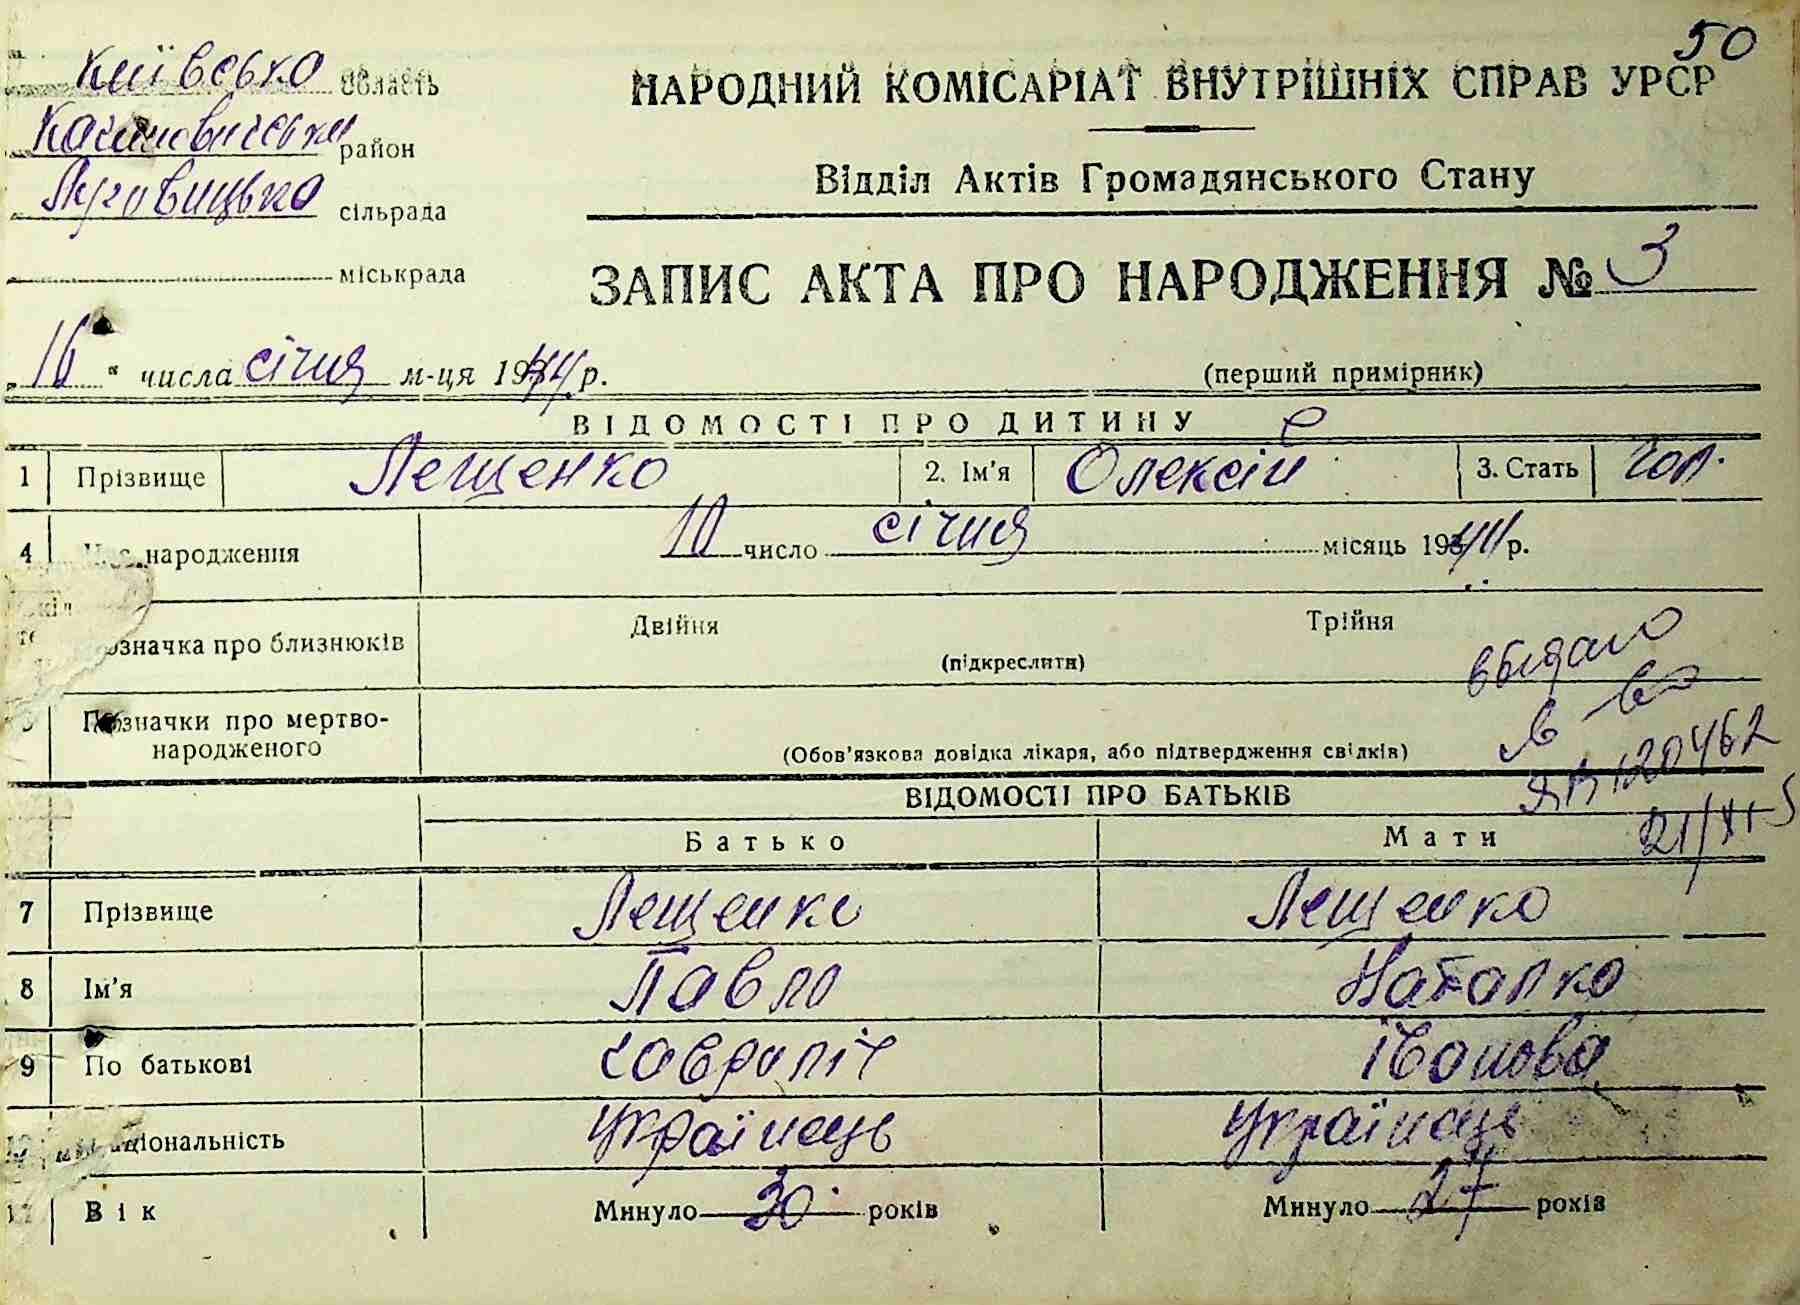 50
Київсько область
НАРОДНИЙ КОМІСАРІАТ ВНУТРІШНІХ СПРАВ УРСР
район
Відділ Актів Громадянського Стану
сільрада
міськрада
ЗАПИС АКТА ПРО НАРОДЖЕННЯ № 3
„16“ числа січня м-ця 1944 р.
(перший примірник)
ВІДОМОСТІ ПРО ДИТИНУ
1 Прізвище Лещенко 2. Ім'я Олексій 3. Стать чол.
4 Час народження 10 число січня місяць 1944 р.
Позначка про близнюків Двійня Трійня
(підкреслити)
выдано
Позначки про мертво-
народженого
(Обов'язкова довідка лікаря, або підтвердження свідків)
120462
ВІДОМОСТІ ПРО БАТЬКІВ
Батько Мати
21/XI-5
7 Прізвище Лещенко Лещенко
8 Ім'я Павло Наталко
9 По батькові Іванова
10 Національність Українець Українець
11 Вік Минуло 30 років Минуло 27 років